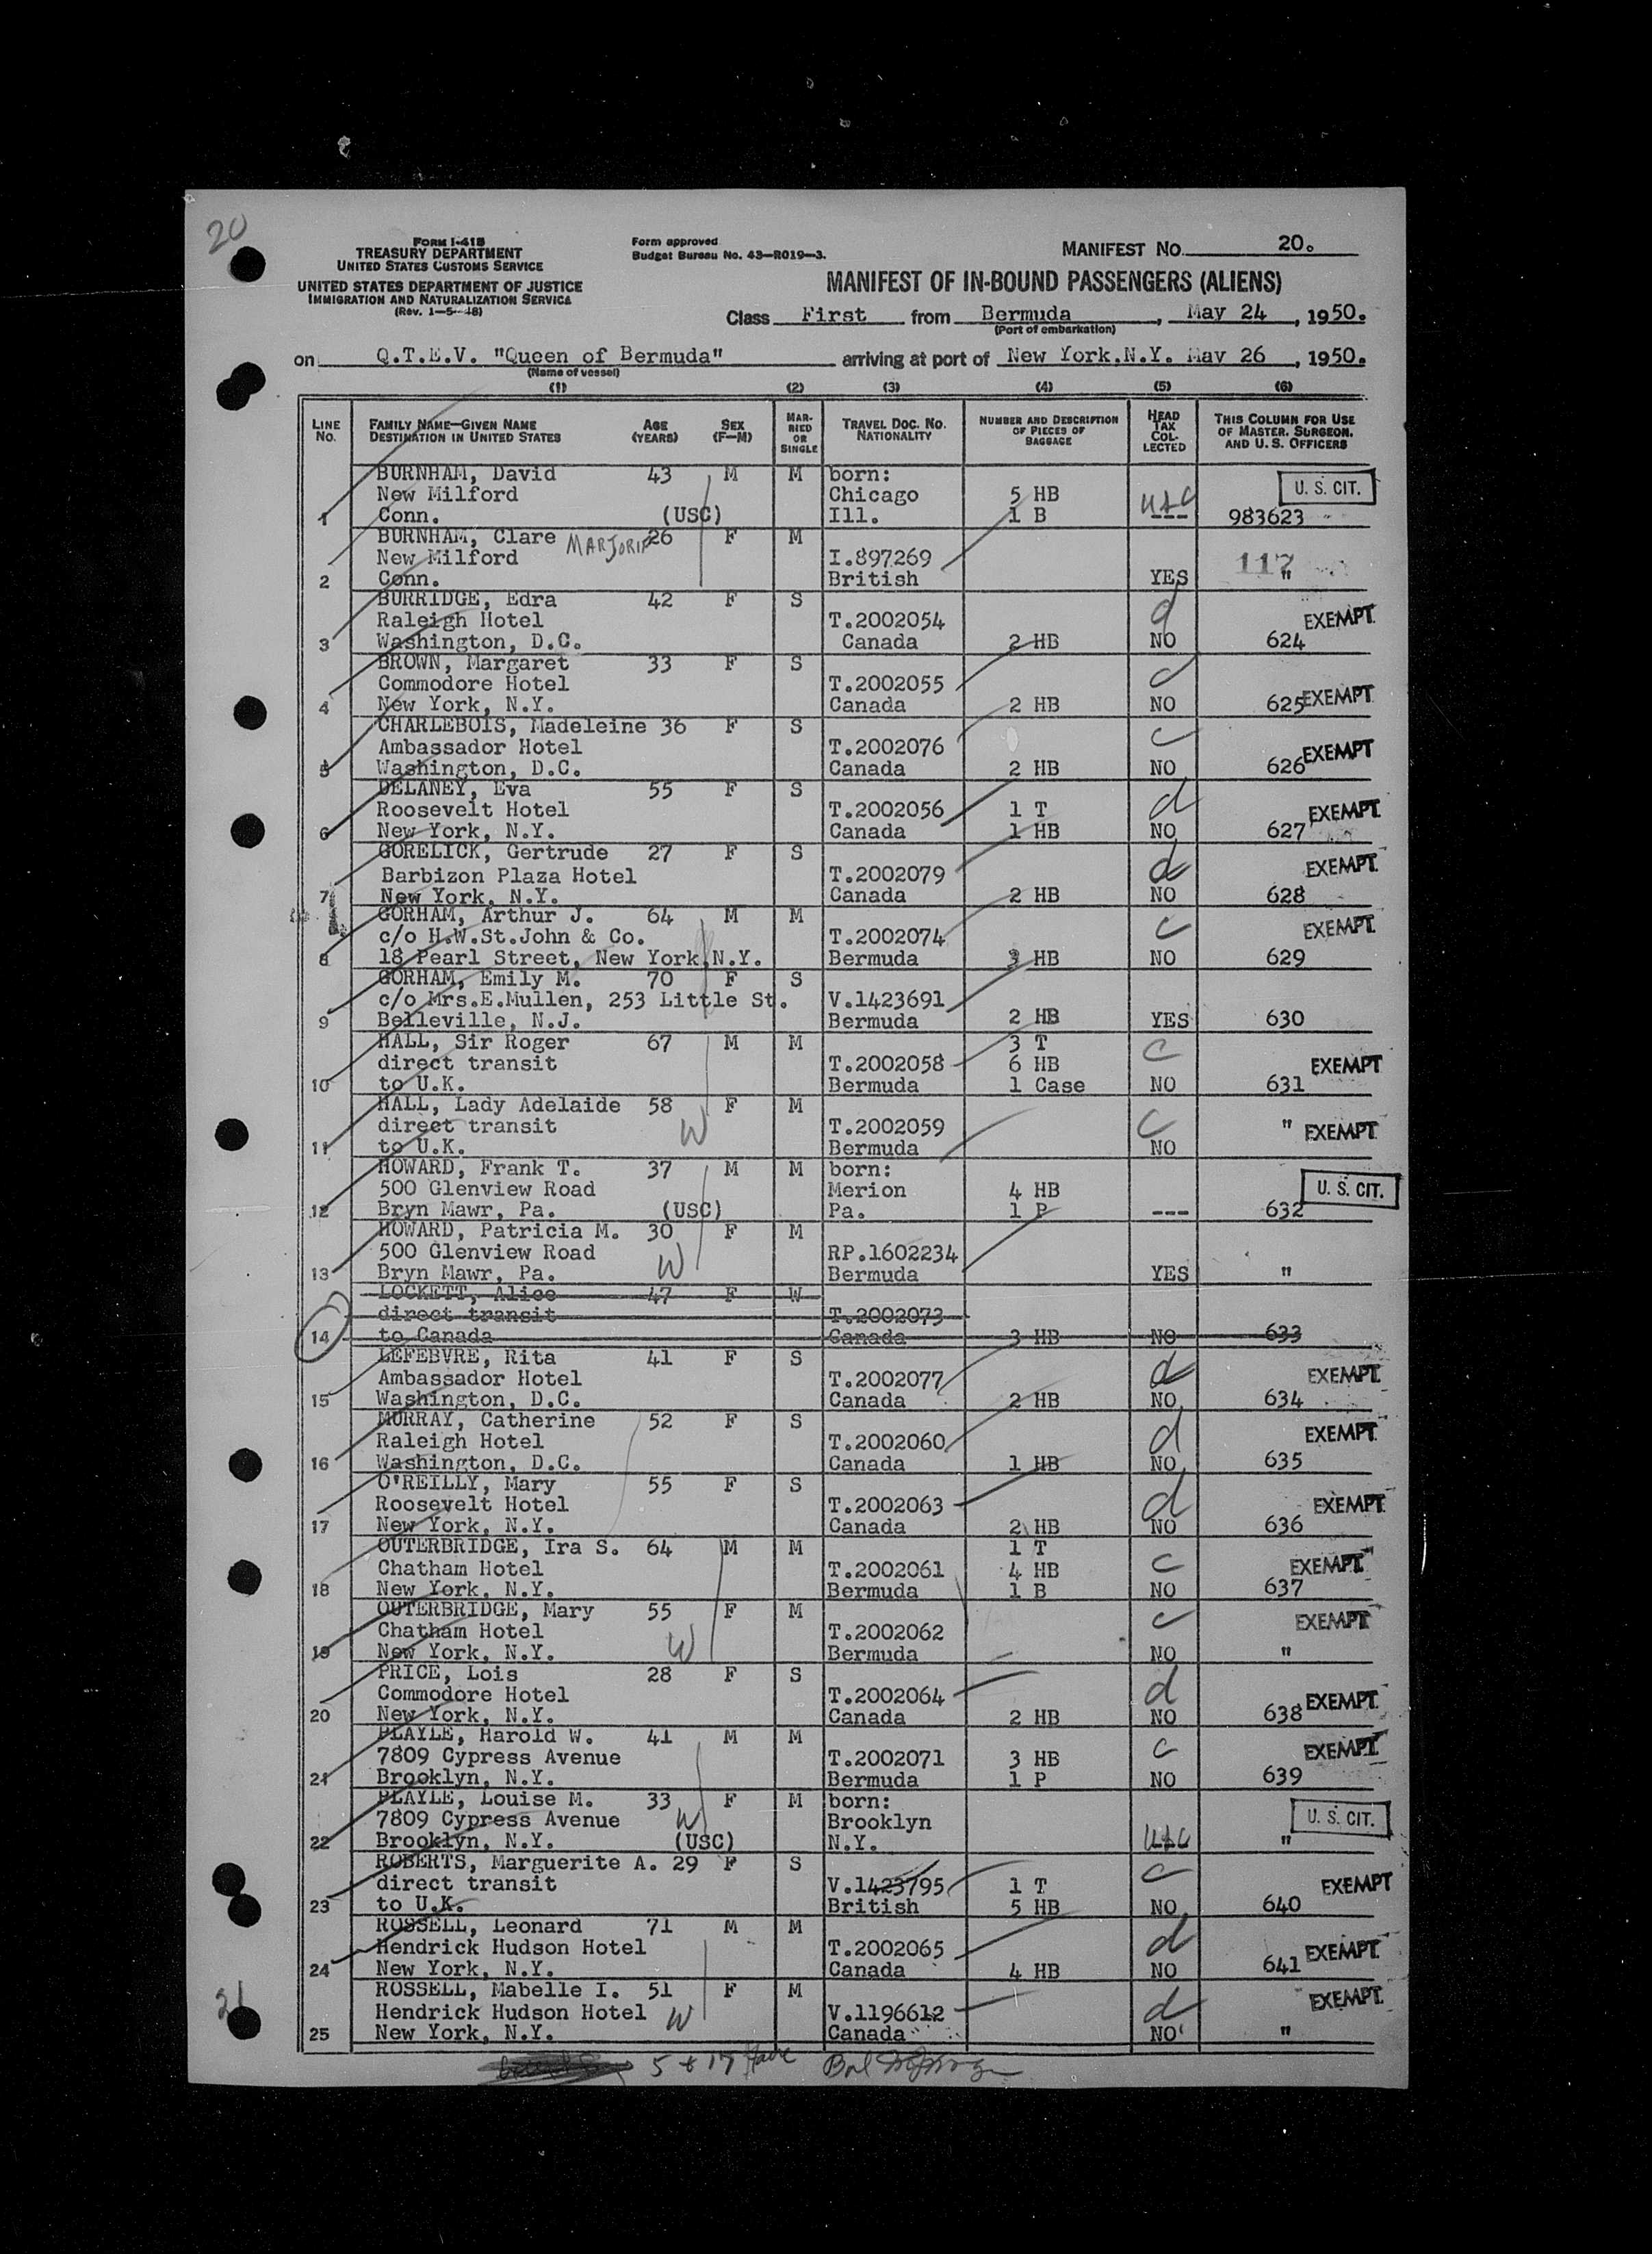 20
FORM I-418
TREASURY DEPARTMENT
UNITED STATES CUSTOMS SERVICE
UNITED STATES DEPARTMENT OF JUSTICE
IMMIGRATION AND NATURALIZATION SERVICE
(Rev. 1-5-48)
Form approved
Budget Bureau No. 43-R019-3.
MANIFEST NO. 20.
MANIFEST OF IN-BOUND PASSENGERS (ALIENS)
Class First from Bermuda, May 24, 1950.
(Port of embarkation)
on Q.T.E.V. "Queen of Bermuda" arriving at port of New York, N.Y. May 26, 1950.
(Name of vessel)
(1) (2) (3) (4) (5) (6)
LINE No. FAMILY NAME—GIVEN NAME DESTINATION IN UNITED STATES AGE (YEARS) SEX (F-M) MARRIED OR SINGLE TRAVEL DOC. NO. NATIONALITY NUMBER AND DESCRIPTION OF PIECES OF BAGGAGE HEAD TAX COLLECTED THIS COLUMN FOR USE OF MASTER, SURGEON, AND U. S. OFFICERS
BURNHAM, David 43 M M born:
New Milford Chicago 5 HB USC U. S. CIT.
1 Conn. (USC) Ill. 1 B --- 983623
BURNHAM, Clare MARJORIE 26 F M
New Milford I.897269 117
2 Conn. British YES "
BURRIDGE, Edra 42 F S
Raleigh Hotel T.2002054 d EXEMPT
3 Washington, D.C. Canada 2 HB NO 624
BROWN, Margaret 33 F S
Commodore Hotel T.2002055 c
4 New York, N.Y. Canada 2 HB NO 625 EXEMPT
CHARLEBOIS, Madeleine 36 F S
Ambassador Hotel T.2002076 c
5 Washington, D.C. Canada 2 HB NO 626 EXEMPT
DELANEY, Eva 55 F S
Roosevelt Hotel T.2002056 1 T d EXEMPT
6 New York, N.Y. Canada 1 HB NO 627
GORELICK, Gertrude 27 F S
Barbizon Plaza Hotel T.2002079 d EXEMPT
7 New York, N.Y. Canada 2 HB NO 628
GORHAM, Arthur J. 64 M M
c/o H.W.St.John & Co. T.2002074 c EXEMPT
8 18 Pearl Street, New York,N.Y. Bermuda 3 HB NO 629
GORHAM, Emily M. 70 F S
c/o Mrs.E.Mullen, 253 Little St. V.1423691
9 Belleville, N.J. Bermuda 2 HB YES 630
HALL, Sir Roger 67 M M 3 T
direct transit T.2002058 6 HB c EXEMPT
10 to U.K. Bermuda 1 Case NO 631
HALL, Lady Adelaide 58 F M
direct transit W T.2002059 c " EXEMPT
11 to U.K. Bermuda NO
HOWARD, Frank T. 37 M M born:
500 Glenview Road Merion 4 HB U. S. CIT.
12 Bryn Mawr, Pa. (USC) Pa. 1 P --- 632
HOWARD, Patricia M. 30 F M
500 Glenview Road W RP.1602234
13 Bryn Mawr, Pa. Bermuda YES "
LOCKETT, Alice 47 F W
direct transit T.2002073
14 to Canada Canada 3 HB NO 633
LEFEBVRE, Rita 41 F S
Ambassador Hotel T.2002077 d EXEMPT
15 Washington, D.C. Canada 2 HB NO 634
MURRAY, Catherine 52 F S
Raleigh Hotel T.2002060 d EXEMPT
16 Washington, D.C. Canada 1 HB NO 635
O'REILLY, Mary 55 F S
Roosevelt Hotel T.2002063 d EXEMPT
17 New York, N.Y. Canada 2 HB NO 636
OUTERBRIDGE, Ira S. 64 M M 1 T
Chatham Hotel T.2002061 4 HB c EXEMPT
18 New York, N.Y. Bermuda 1 B NO 637
OUTERBRIDGE, Mary 55 F M
Chatham Hotel W T.2002062 c EXEMPT
19 New York, N.Y. Bermuda NO "
PRICE, Lois 28 F S
Commodore Hotel T.2002064 d
20 New York, N.Y. Canada 2 HB NO 638 EXEMPT
PLAYLE, Harold W. 41 M M
7809 Cypress Avenue T.2002071 3 HB c EXEMPT
21 Brooklyn, N.Y. Bermuda 1 P NO 639
PLAYLE, Louise M. 33 F M born:
7809 Cypress Avenue W Brooklyn U. S. CIT.
22 Brooklyn, N.Y. (USC) N.Y. USC "
ROBERTS, Marguerite A. 29 F S
direct transit V.1423795 1 T c EXEMPT
23 to U.K. British 5 HB NO 640
ROSSELL, Leonard 71 M M
Hendrick Hudson Hotel T.2002065 d
24 New York, N.Y. Canada 4 HB NO 641 EXEMPT
ROSSELL, Mabelle I. 51 F M
Hendrick Hudson Hotel W V.1196612 d EXEMPT
25 New York, N.Y. Canada NO "
21
5 + 19